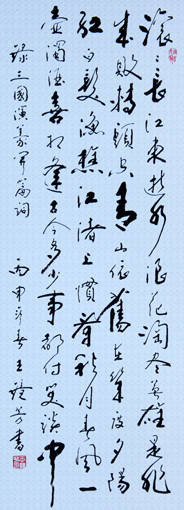 滚滚长江东逝水浪花淘尽英雄是非
成败转头空青山依旧在几度夕阳
红白发渔樵江渚上惯看秋月春风一
壶浊酒喜相逢古今多少事都付笑谈中
录三國演义开篇词
丙申年春王 芳书